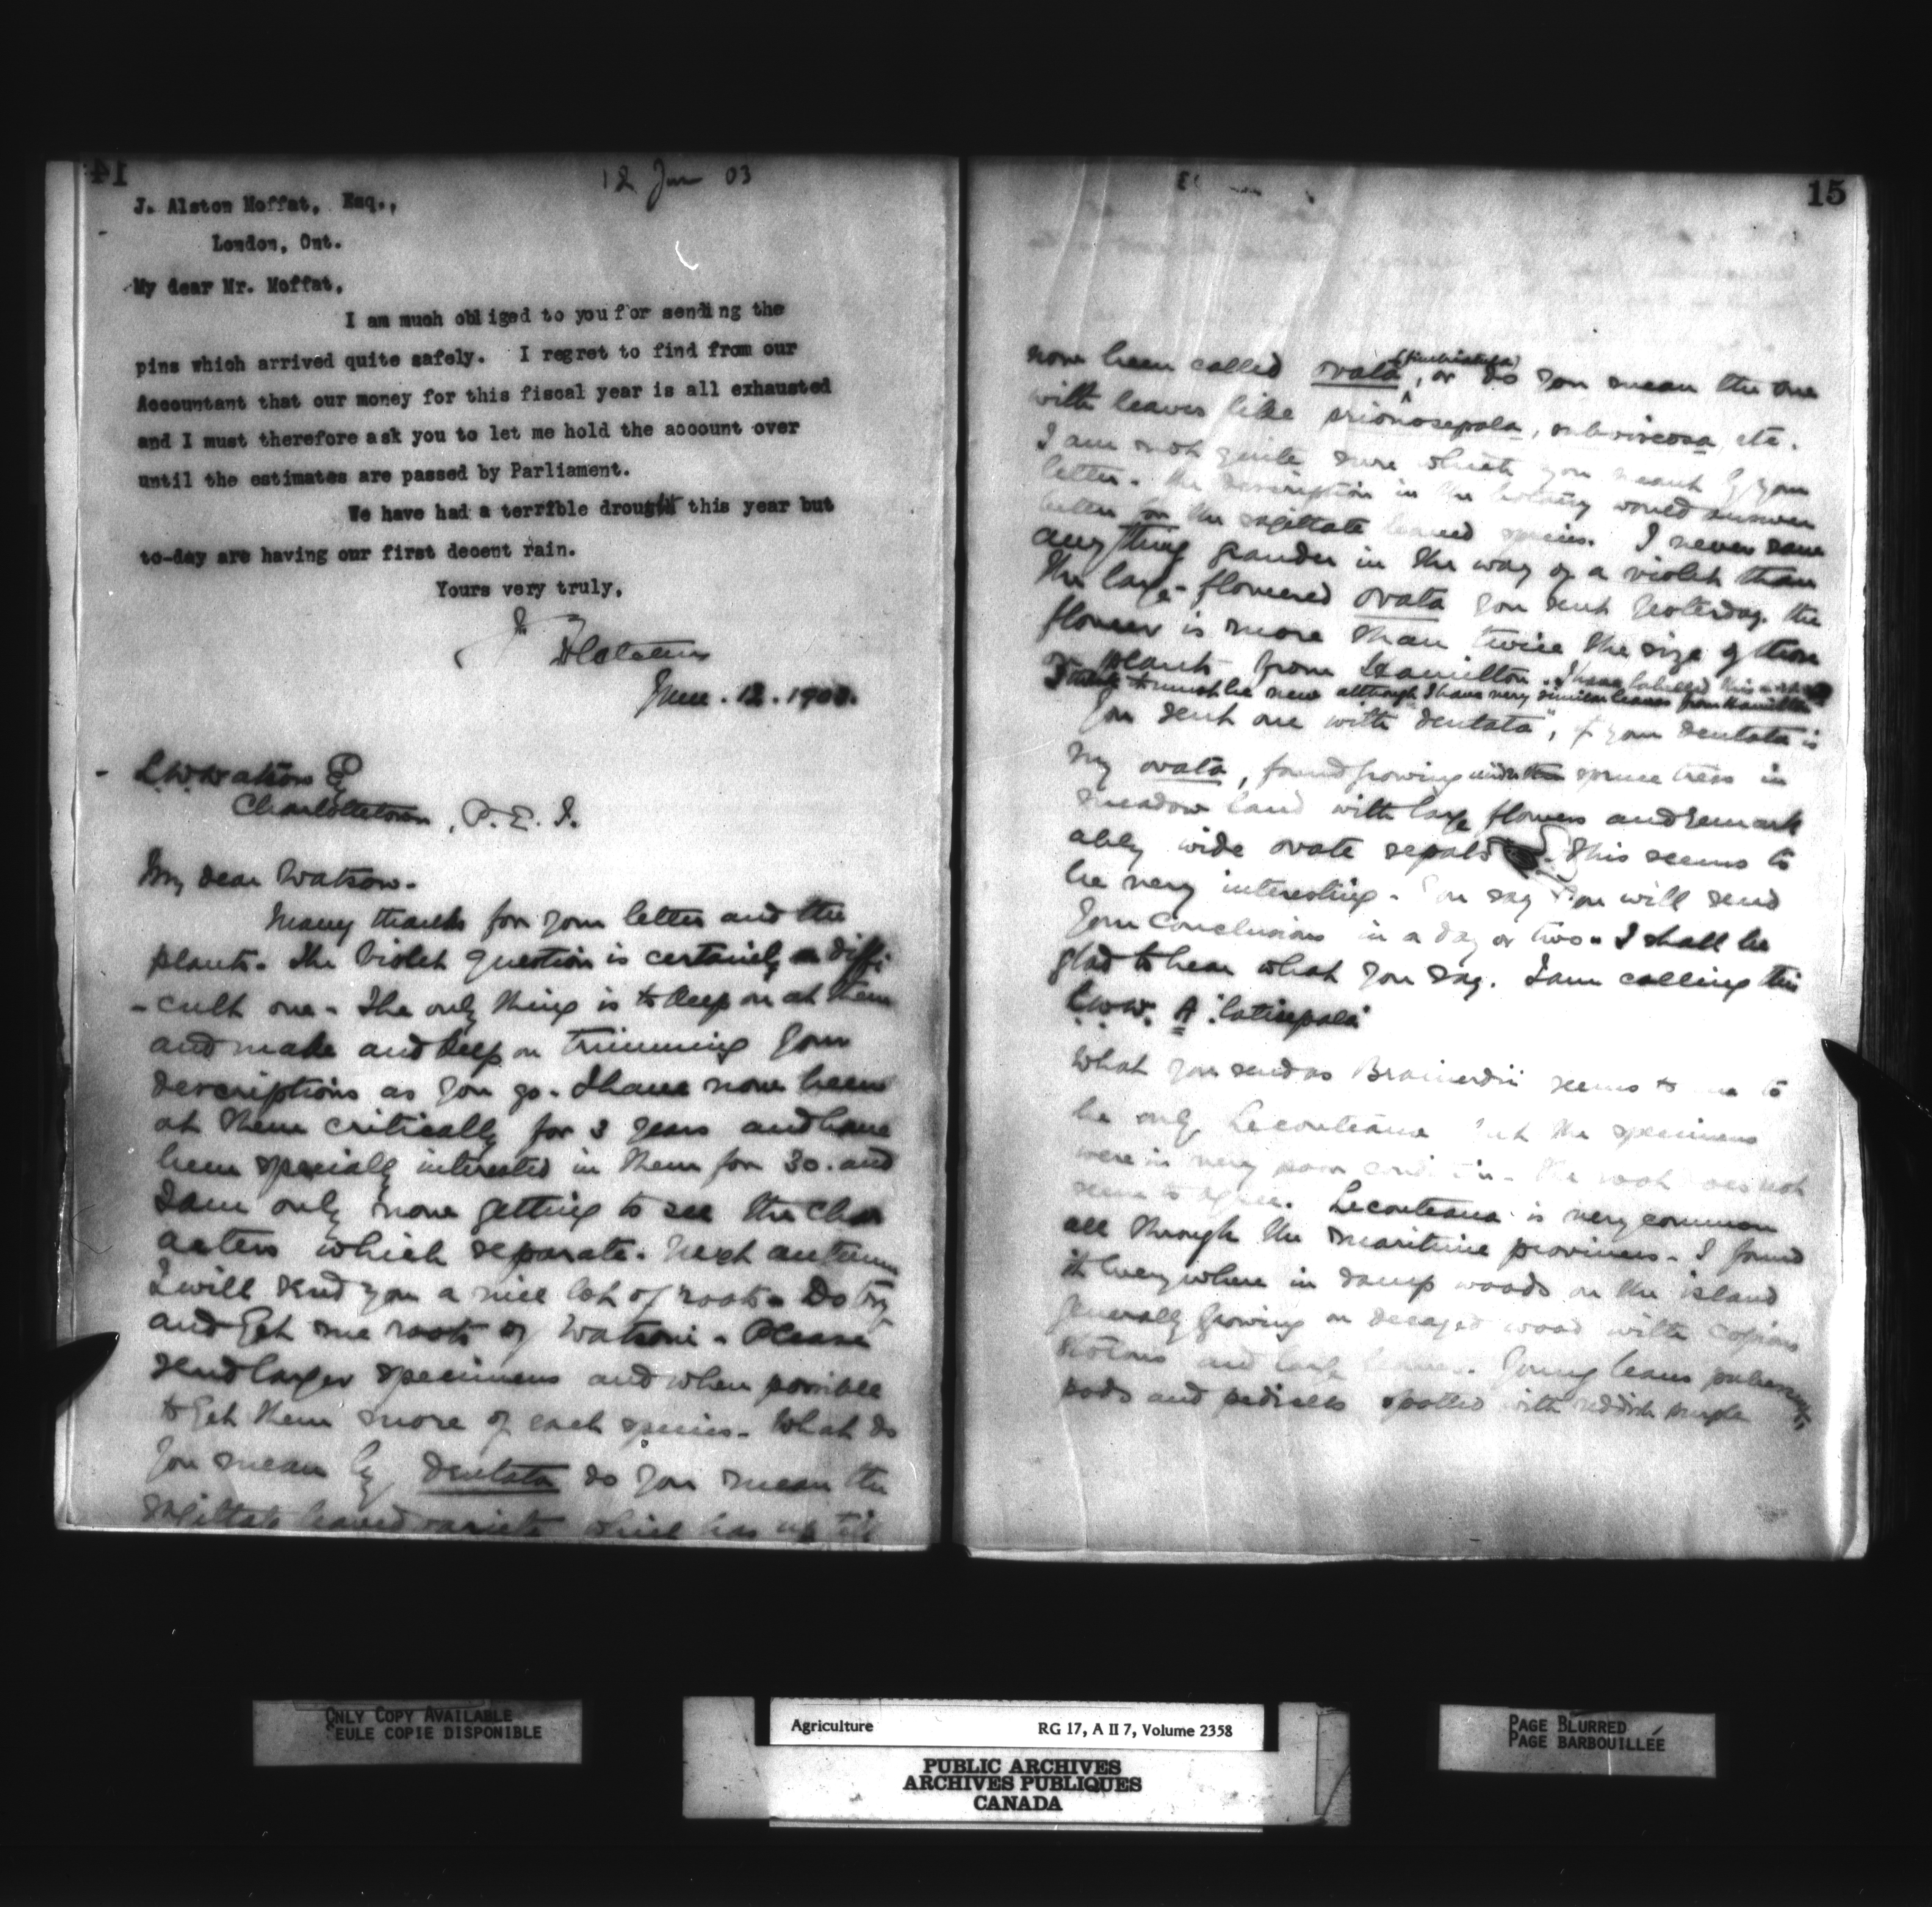 14
12 Jun 03
J. Alston Moffat, Esq.,
London, Ont.
My dear Mr. Moffat,
I am much obliged to you for sending the
pins which arrived quite safely. I regret to find from our
Accountant that our money for this fiscal year is all exhausted
and I must therefore ask you to let me hold the account over
until the estimates are passed by Parliament.
We have had a terrible drought this year but
to-day are having our first decent rain.
Yours very truly,
June . 12 . 1903.
L. W. Watson Eq
Charlottetown, P. E. I.
My dear Watson.
Many thanks for your letter and the
plants. The Violet question is certainly a diffi
-cult one. The only thing is to keep on at them
and make and keep on trimming your
descriptions as you go. I have now been
at them critically for 3 years and have
been specially interested in them for 30. and
I am only now getting to see the char
acters which separate. Next autumn
I will send you a nice lot of roots. Do try
and get me roots of Watsoni. Please
send larger specimens and when possible
to get them more of each species. What do
you mean by dentata do you mean the
sagittate leaved variety which has up till
15
now been called ovata, or do you mean the one
with leaves like prionosepala, subviscosa etc.
I am not quite sure which you meant by your
letter. The description in the botany would answer
better for the sagittate leaved species. I never saw
anything grander in the way of a violet than
the large-flowered ovata you sent yesterday. The
flower is more than twice the size of those
on plants from Hamilton. I have labelled this
I think it must be new although I have very similar leaves from Hamilton
You sent one with "dentata", if your dentata is
my ovata, found growing under spruce trees in
meadow land with large flowers and remark
ably wide ovate sepals. This seems to
be very interesting. You say you will send
your conclusions in a day or two. I shall be
glad to hear what you say. I am calling this
L.W.W. A "latisepala"
What you send as Brainerdii seems to me to
be only Leconteana but the specimens
were in very poor condition. The root does not
seem to agree. Leconteana is very common
all through the maritime provinces. I found
it everywhere in damp woods on the island
generally growing on decayed wood with copious
stolons and large leaves. Young leaves pubescent,
pods and pedicels spotted with reddish purple
ONLY COPY AVAILABLE
SEULE COPIE DISPONIBLE
Agriculture RG 17, A II 7, Volume 2358
PUBLIC ARCHIVES
ARCHIVES PUBLIQUES
CANADA
PAGE BLURRED
PAGE BARBOUILLÉE